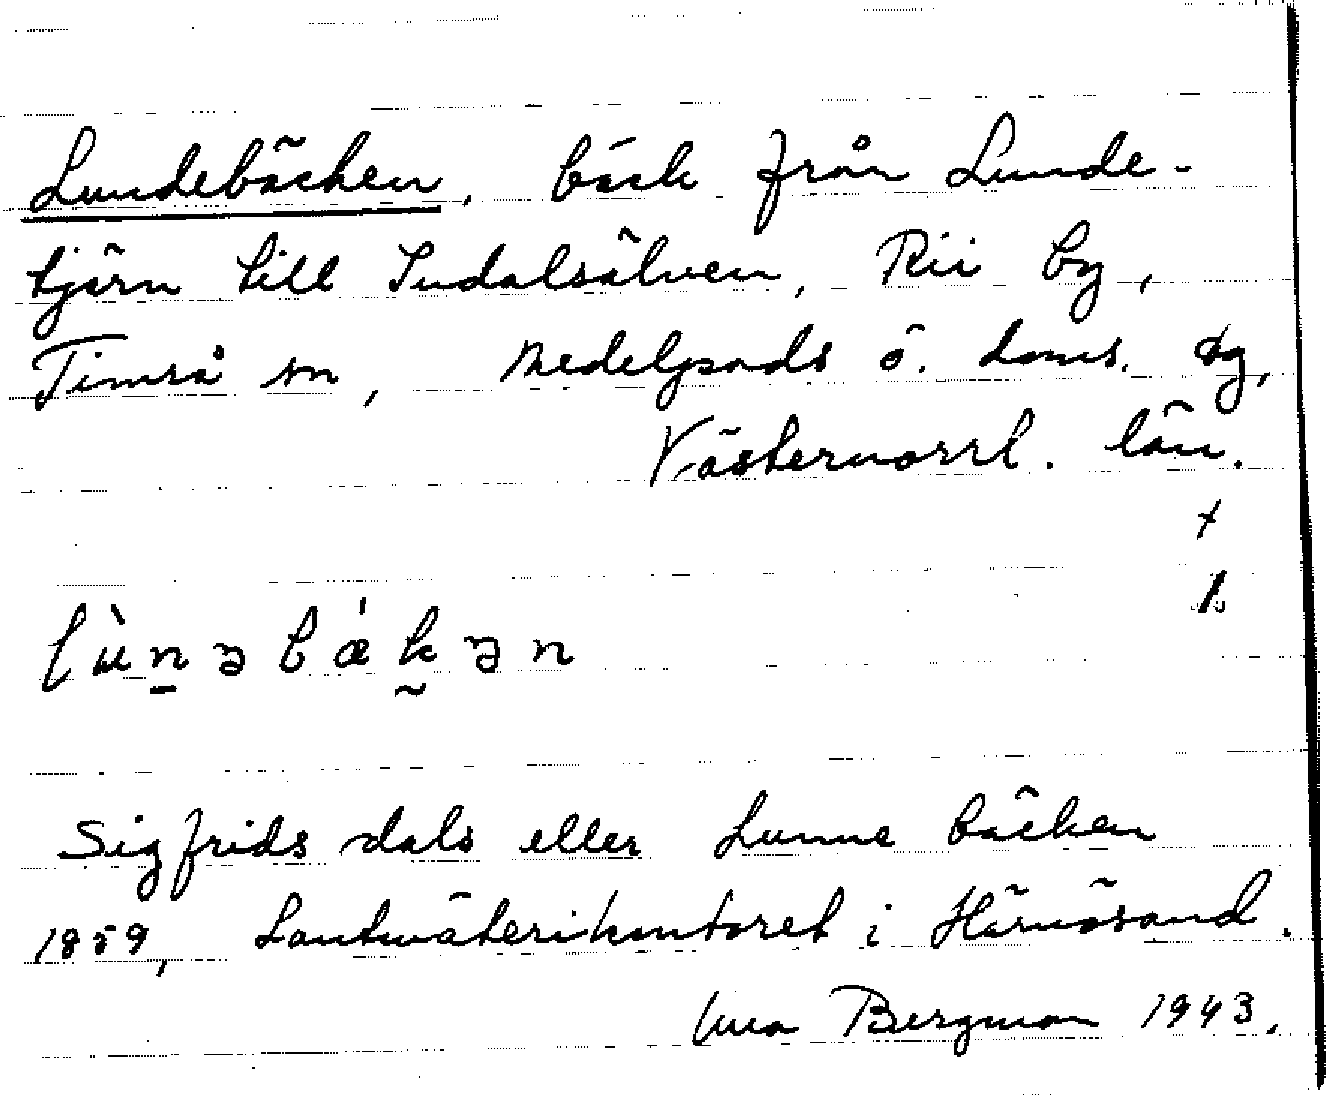 Lundebäcken, bäck från Lunde-
tjärn till Indalsälven, Rii by,
Timrå sn, Medelpads ö. doms. dg,
Västernorrl. län.
+
lùnəbǽkən
Sigfrids dals eller Lunne bäcken
1859, Lantmäterikontoret i Härnösand.
Bergman 1943.